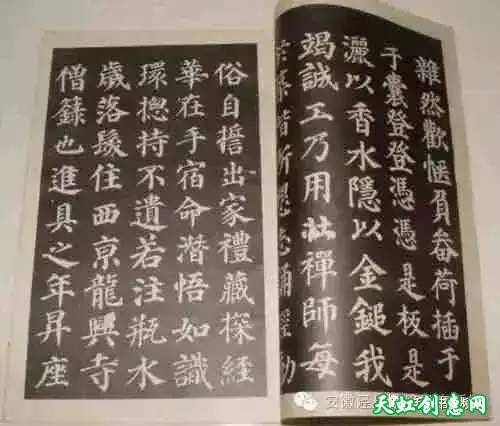 雜然歡愜負畚荷插于
于囊登登憑憑是板是
灑以香水隱以金鎚我
竭誠工乃用壯禪師每
於築階所懇志誦經
俗自誓出家禮藏探經
華在手宿命潛悟如識
環揔持不遺若注瓶水
歲落髮住西京龍興寺
僧籙也進具之年昇座
安徽
天虹创意网